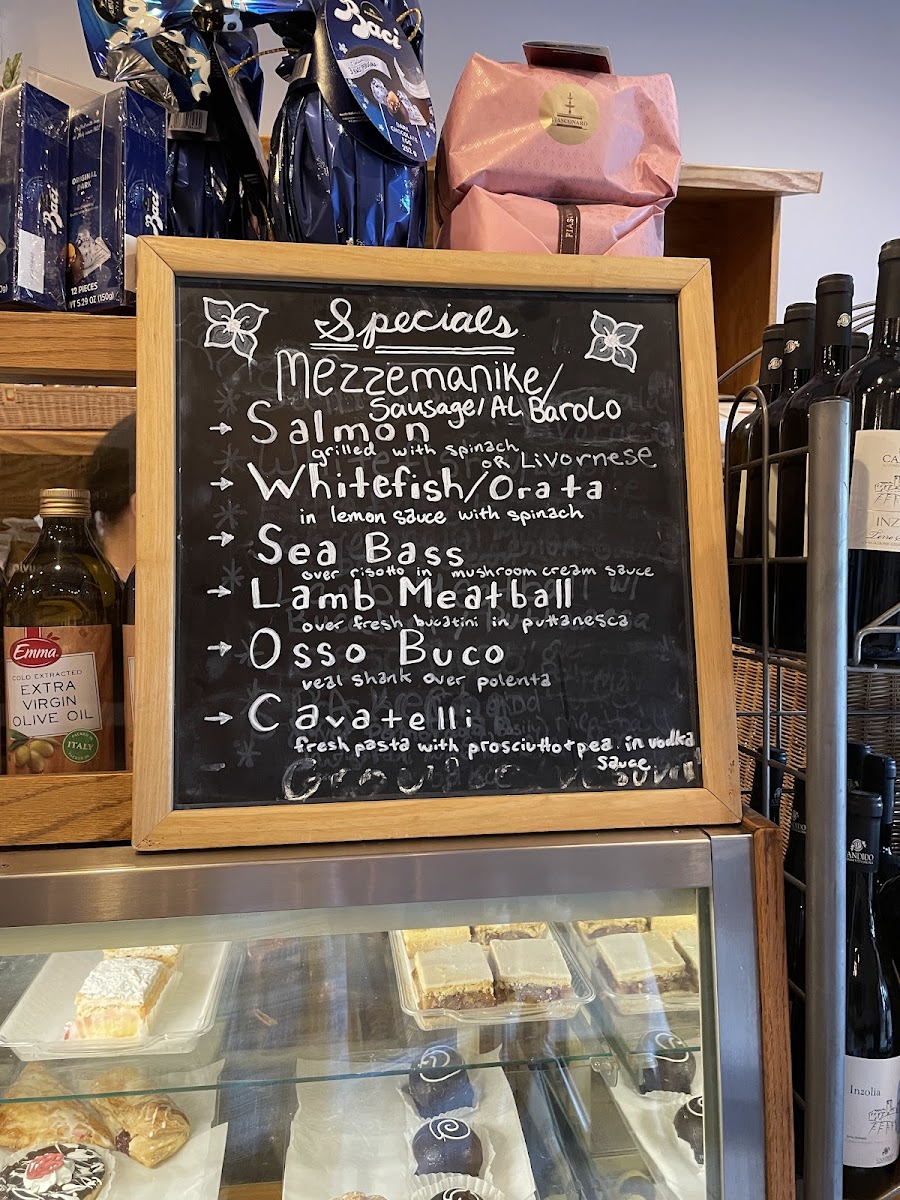 Baci
MILK
CHOCOLATE
EGG
FIASCONARO
Baci
ORIGINAL
DARK
Baci
12 PIECES
WT 5.29 OZ (150g)
FIASCO
Specials
Mezzemanike/
Sausage/AL Barolo
→ Salmon
grilled with spinach
oR Livornese
→ Whitefish/Orata
in lemon sauce with spinach
→ Sea Bass
over risotto in mushroom cream sauce
→ Lamb Meatball
over fresh bucatini in puttanesca
→ Osso Buco
veal shank over polenta
→ Cavatelli
fresh pasta with prosciutto + pea. in vodka
sauce
Emma
COLD EXTRACTED
EXTRA
VIRGIN
OLIVE OIL
ITALY
CA
INZ
CANDIDO
Inzolia